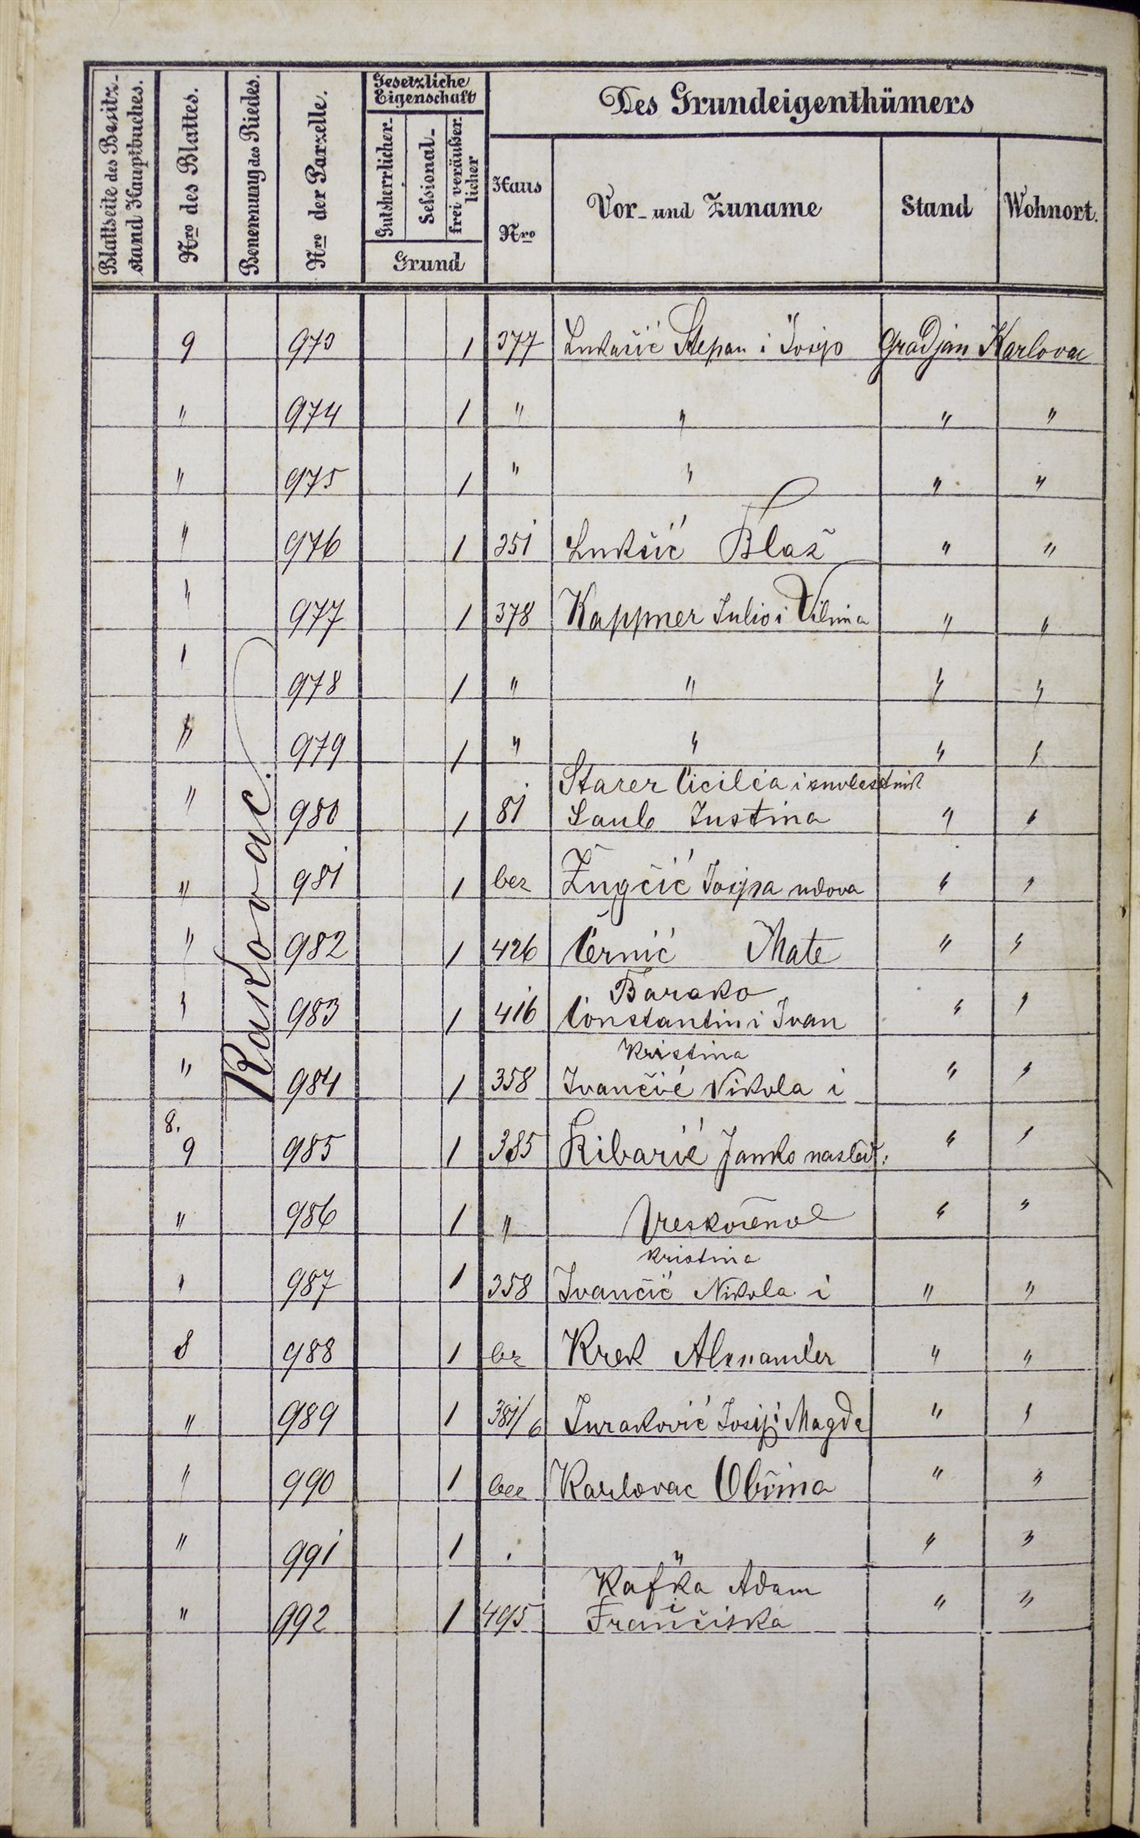 Blattseite des Besitz-
stand Hauptbuches.
Nro des Blattes.
Benennung des Riedes.
Nro der Parzelle.
Gesetzliche
Eigenschaft
Gutsherrlicher-
Sessional-
frei veräußer-
licher
Grund
Des Grundeigenthümers
Haus
Nro
Vor- und Zuname
Stand
Wohnort.
Rakovac.
9 973 1 377 Lukašić Stepan i Josip Gradjan Karlovac
" 974 1 " " " "
" 975 1 " " " "
" 976 1 351 Lukšić Blaž " "
" 977 1 378 Kappner Julio i Vilma " "
" 978 1 " " " "
" 979 1 " " " "
Starer Cicilia i
" 980 1 81 Laub Justina " "
" 981 1 bez Žugčić Josipa udova " "
" 982 1 426 Černić Mate " "
Barako
" 983 1 416 Constantin i Ivan " "
Kristina
" 984 1 358 Ivančić Nikola i " "
8.
9 985 1 385 Ribarić Janko nasled: " "
" 986 1 " " "
Kristina
" 987 1 358 Ivančić Nikola i " "
8 988 1 bez Krek Alexander " "
" 989 1 381/6 Juraković Josip i Magda " "
" 990 1 bez Karlovac Obćina " "
" 991 1 " " " "
Kafka Adam
i
" 992 1 495 Frančiska " "